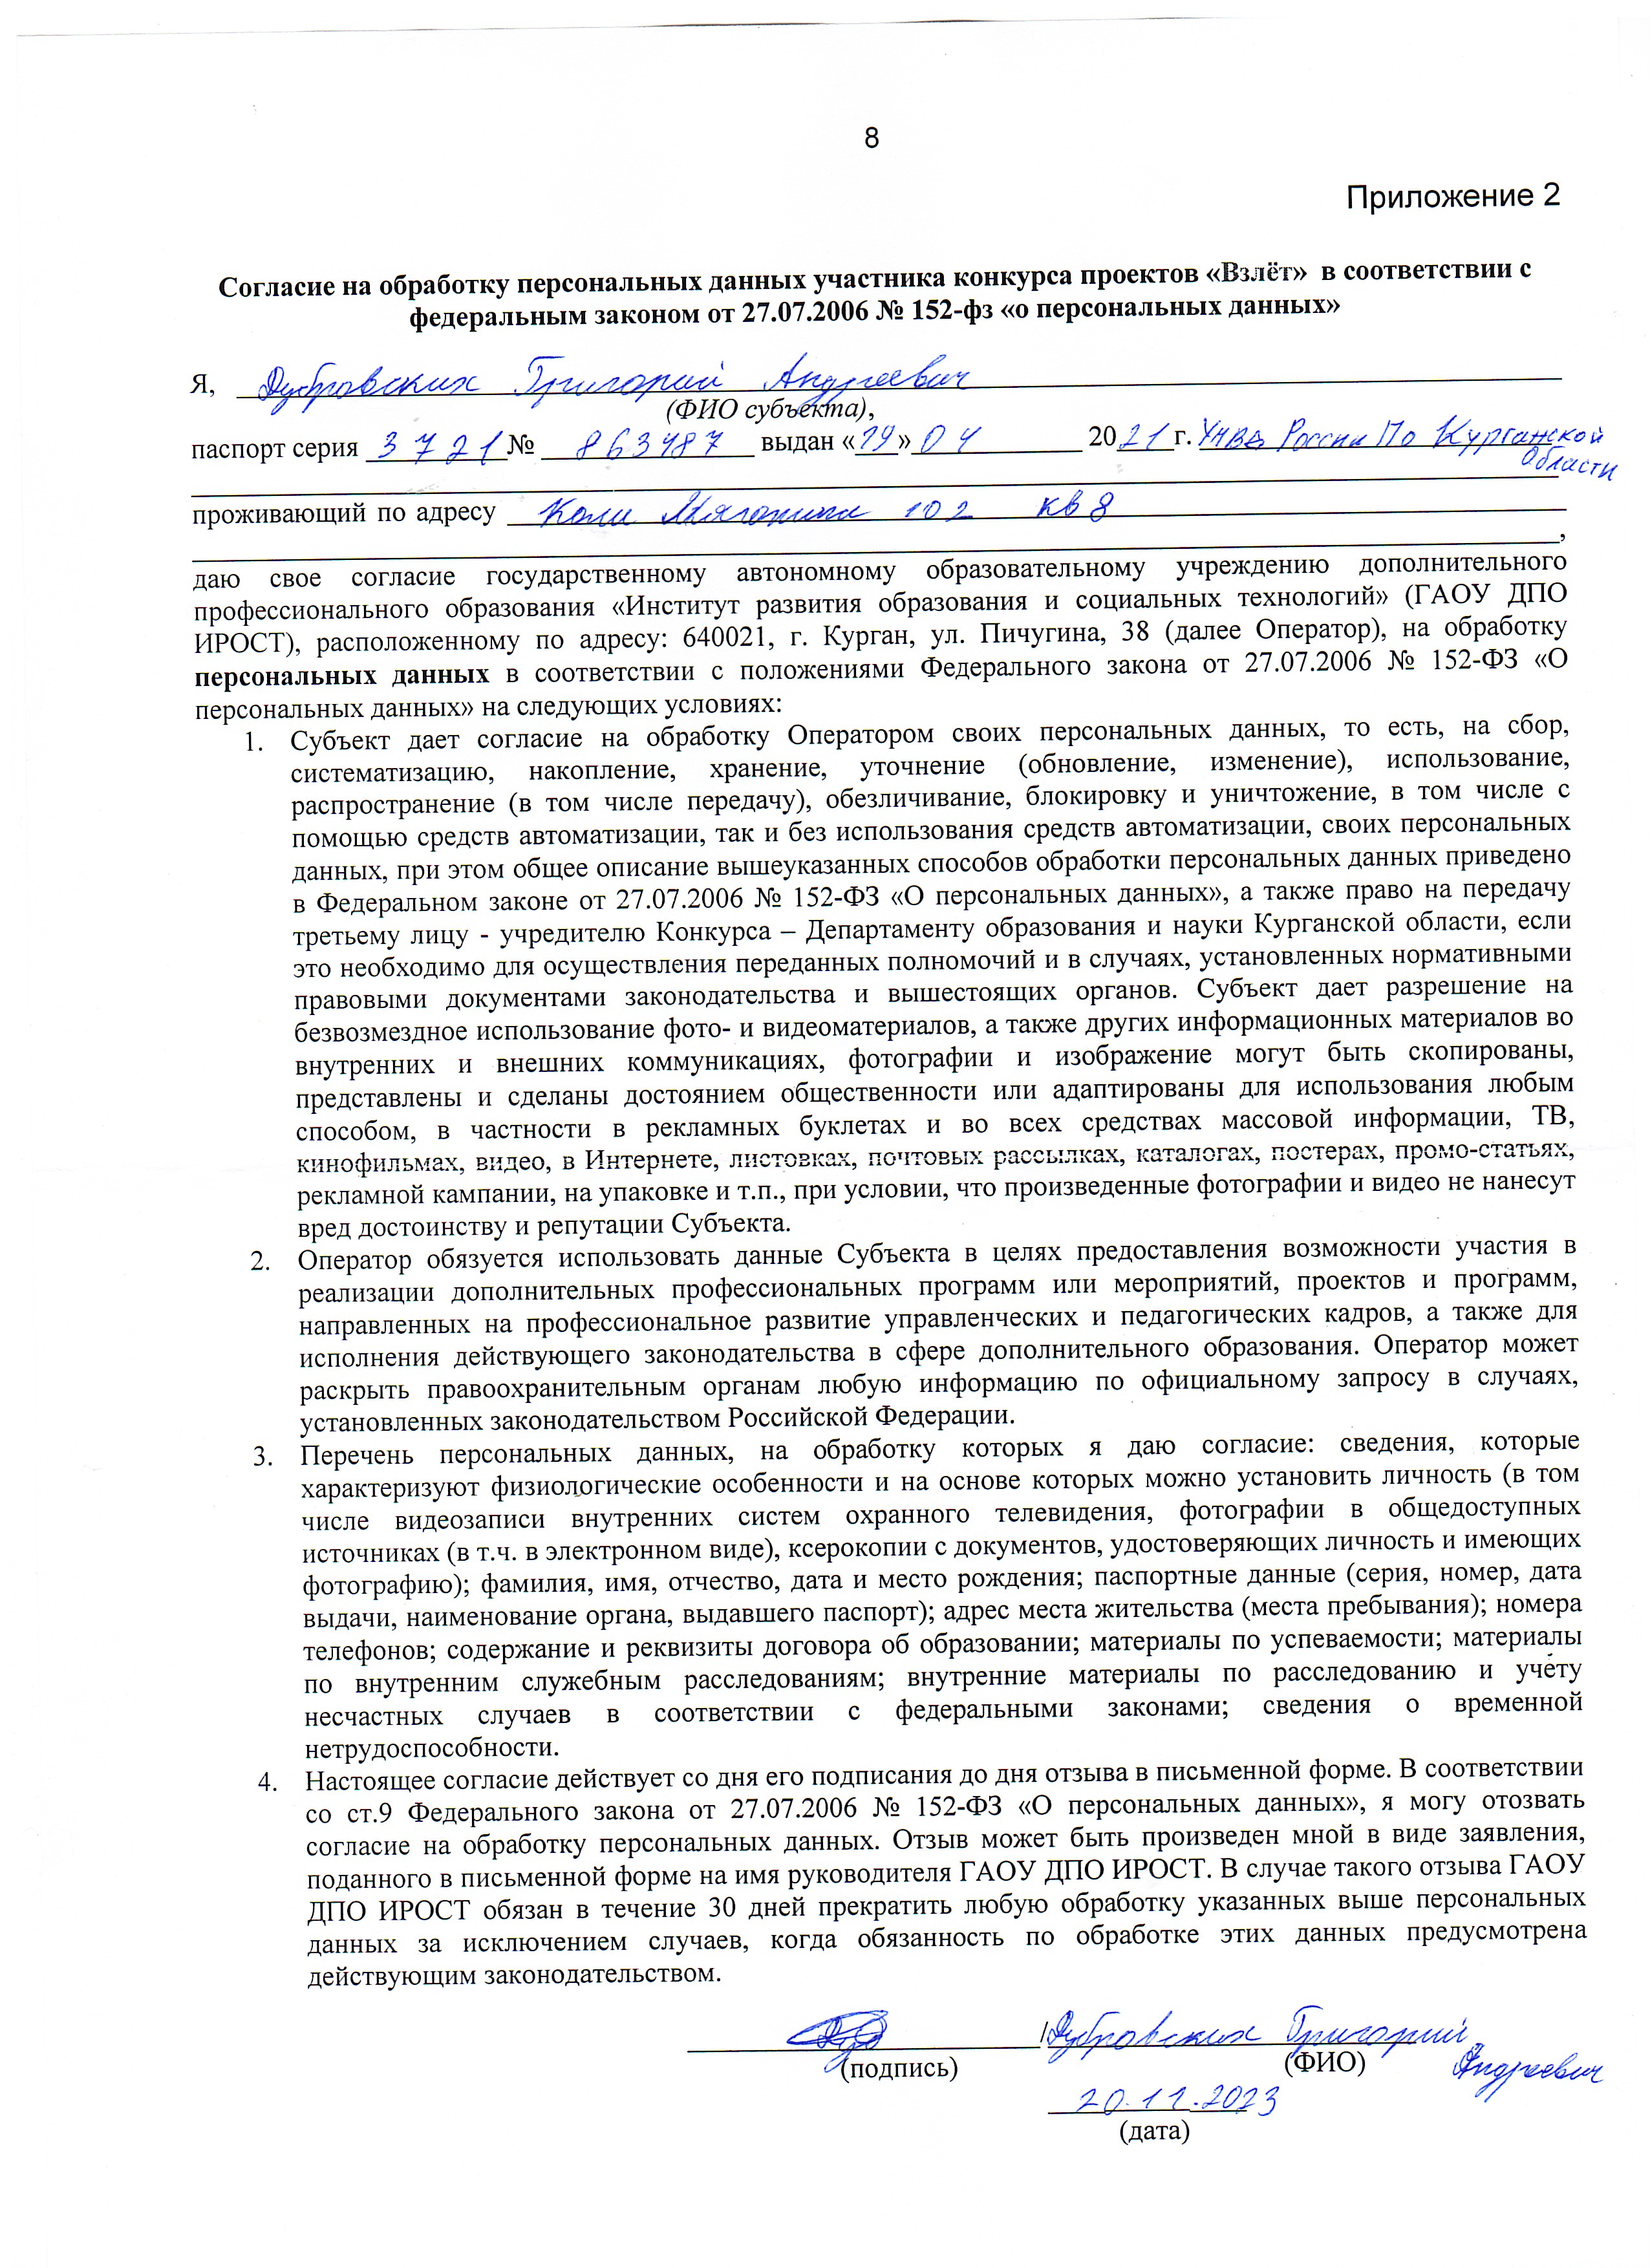 8
Приложение 2
Согласие на обработку персональных данных участника конкурса проектов «Взлёт» в соответствии с
федеральным законом от 27.07.2006 № 152-фз «о персональных данных»
Я, Дубровских Григорий Андреевич
(ФИО субъекта),
паспорт серия 3721 № 863487 выдан «19» 04 2021 г. УМВД России По Курганской
Области
проживающий по адресу Коли Мяготина 102 кв 8
,
даю свое согласие государственному автономному образовательному учреждению дополнительного
профессионального образования «Институт развития образования и социальных технологий» (ГАОУ ДПО
ИРОСТ), расположенному по адресу: 640021, г. Курган, ул. Пичугина, 38 (далее Оператор), на обработку
персональных данных в соответствии с положениями Федерального закона от 27.07.2006 № 152-ФЗ «О
персональных данных» на следующих условиях:
1. Субъект дает согласие на обработку Оператором своих персональных данных, то есть, на сбор,
систематизацию, накопление, хранение, уточнение (обновление, изменение), использование,
распространение (в том числе передачу), обезличивание, блокировку и уничтожение, в том числе с
помощью средств автоматизации, так и без использования средств автоматизации, своих персональных
данных, при этом общее описание вышеуказанных способов обработки персональных данных приведено
в Федеральном законе от 27.07.2006 № 152-ФЗ «О персональных данных», а также право на передачу
третьему лицу - учредителю Конкурса – Департаменту образования и науки Курганской области, если
это необходимо для осуществления переданных полномочий и в случаях, установленных нормативными
правовыми документами законодательства и вышестоящих органов. Субъект дает разрешение на
безвозмездное использование фото- и видеоматериалов, а также других информационных материалов во
внутренних и внешних коммуникациях, фотографии и изображение могут быть скопированы,
представлены и сделаны достоянием общественности или адаптированы для использования любым
способом, в частности в рекламных буклетах и во всех средствах массовой информации, ТВ,
кинофильмах, видео, в Интернете, листовках, почтовых рассылках, каталогах, постерах, промо-статьях,
рекламной кампании, на упаковке и т.п., при условии, что произведенные фотографии и видео не нанесут
вред достоинству и репутации Субъекта.
2. Оператор обязуется использовать данные Субъекта в целях предоставления возможности участия в
реализации дополнительных профессиональных программ или мероприятий, проектов и программ,
направленных на профессиональное развитие управленческих и педагогических кадров, а также для
исполнения действующего законодательства в сфере дополнительного образования. Оператор может
раскрыть правоохранительным органам любую информацию по официальному запросу в случаях,
установленных законодательством Российской Федерации.
3. Перечень персональных данных, на обработку которых я даю согласие: сведения, которые
характеризуют физиологические особенности и на основе которых можно установить личность (в том
числе видеозаписи внутренних систем охранного телевидения, фотографии в общедоступных
источниках (в т.ч. в электронном виде), ксерокопии с документов, удостоверяющих личность и имеющих
фотографию); фамилия, имя, отчество, дата и место рождения; паспортные данные (серия, номер, дата
выдачи, наименование органа, выдавшего паспорт); адрес места жительства (места пребывания); номера
телефонов; содержание и реквизиты договора об образовании; материалы по успеваемости; материалы
по внутренним служебным расследованиям; внутренние материалы по расследованию и учёту
несчастных случаев в соответствии с федеральными законами; сведения о временной
нетрудоспособности.
4. Настоящее согласие действует со дня его подписания до дня отзыва в письменной форме. В соответствии
со ст.9 Федерального закона от 27.07.2006 № 152-ФЗ «О персональных данных», я могу отозвать
согласие на обработку персональных данных. Отзыв может быть произведен мной в виде заявления,
поданного в письменной форме на имя руководителя ГАОУ ДПО ИРОСТ. В случае такого отзыва ГАОУ
ДПО ИРОСТ обязан в течение 30 дней прекратить любую обработку указанных выше персональных
данных за исключением случаев, когда обязанность по обработке этих данных предусмотрена
действующим законодательством.
/Дубровских Григорий
Андреевич
(подпись) (ФИО)
20.12.2023
(дата)